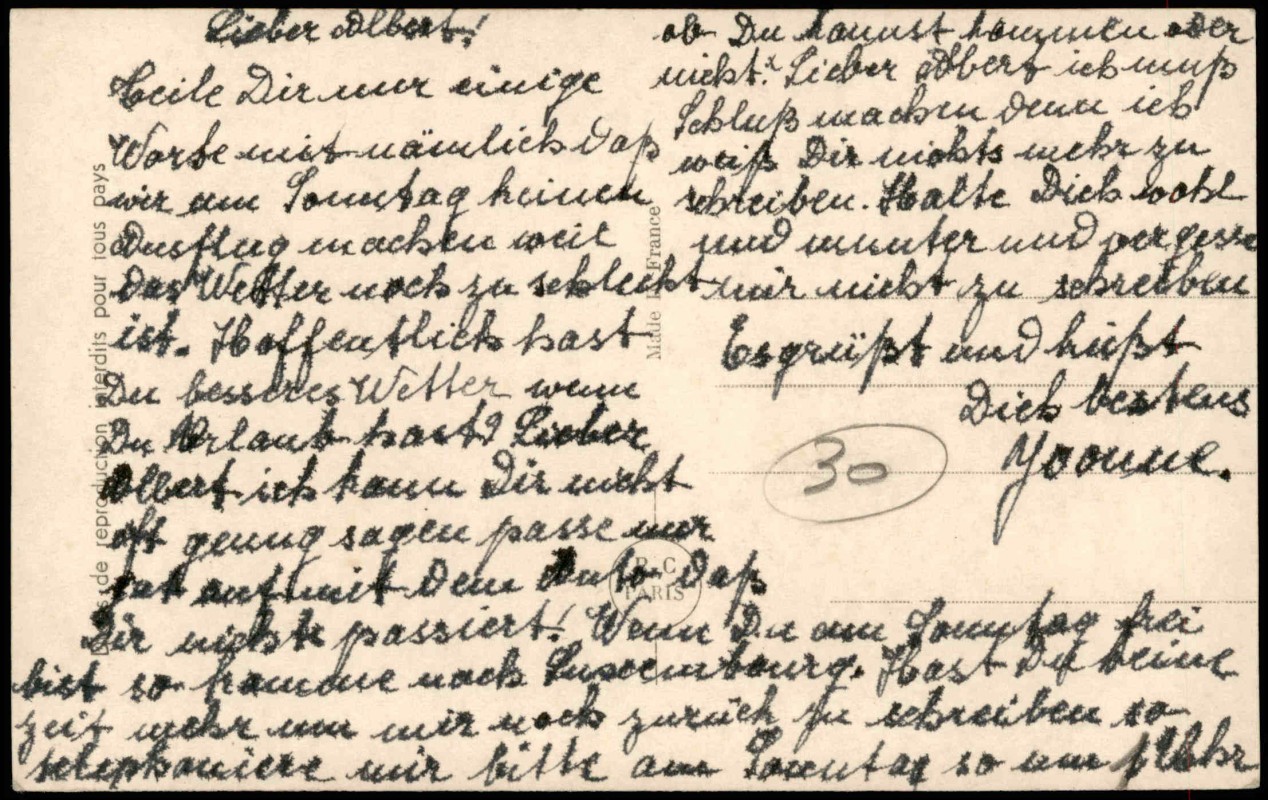 Lieber Albert!
Teile Dir nur einige
Worte mit nämlich daß
wir am Sonntag keinen
Ausflug machen weil
das Wetter noch zu schlecht
ist. Hoffentlich hast
Du besseres Wetter wenn
Du Urlaub hast? Lieber
Albert ich kann Dir nicht
oft genug sagen passe mir
gut auf mit dem Auto daß
Dir nichts passiert! Wenn Du am Sonntag frei
bist so komme nach Luxembourg. Hast Du keine
zeit mehr um mir noch zurück zu schreiben so
telephoniere mir bitte am Sonntag so um 1 Uhr
ob Du kannst kommen oder
nicht. Lieber Albert ich muß
Schluß machen denn ich
weiß Dir nichts mehr zu
schreiben. Halte Dich wohl
und munter und vergesse
mir nicht zu schreiben
Es grüßt und küßt
Dich bestens
Yvonne.
30
de reproduction interdits pour tous pays
Made in France
P.C
PARIS